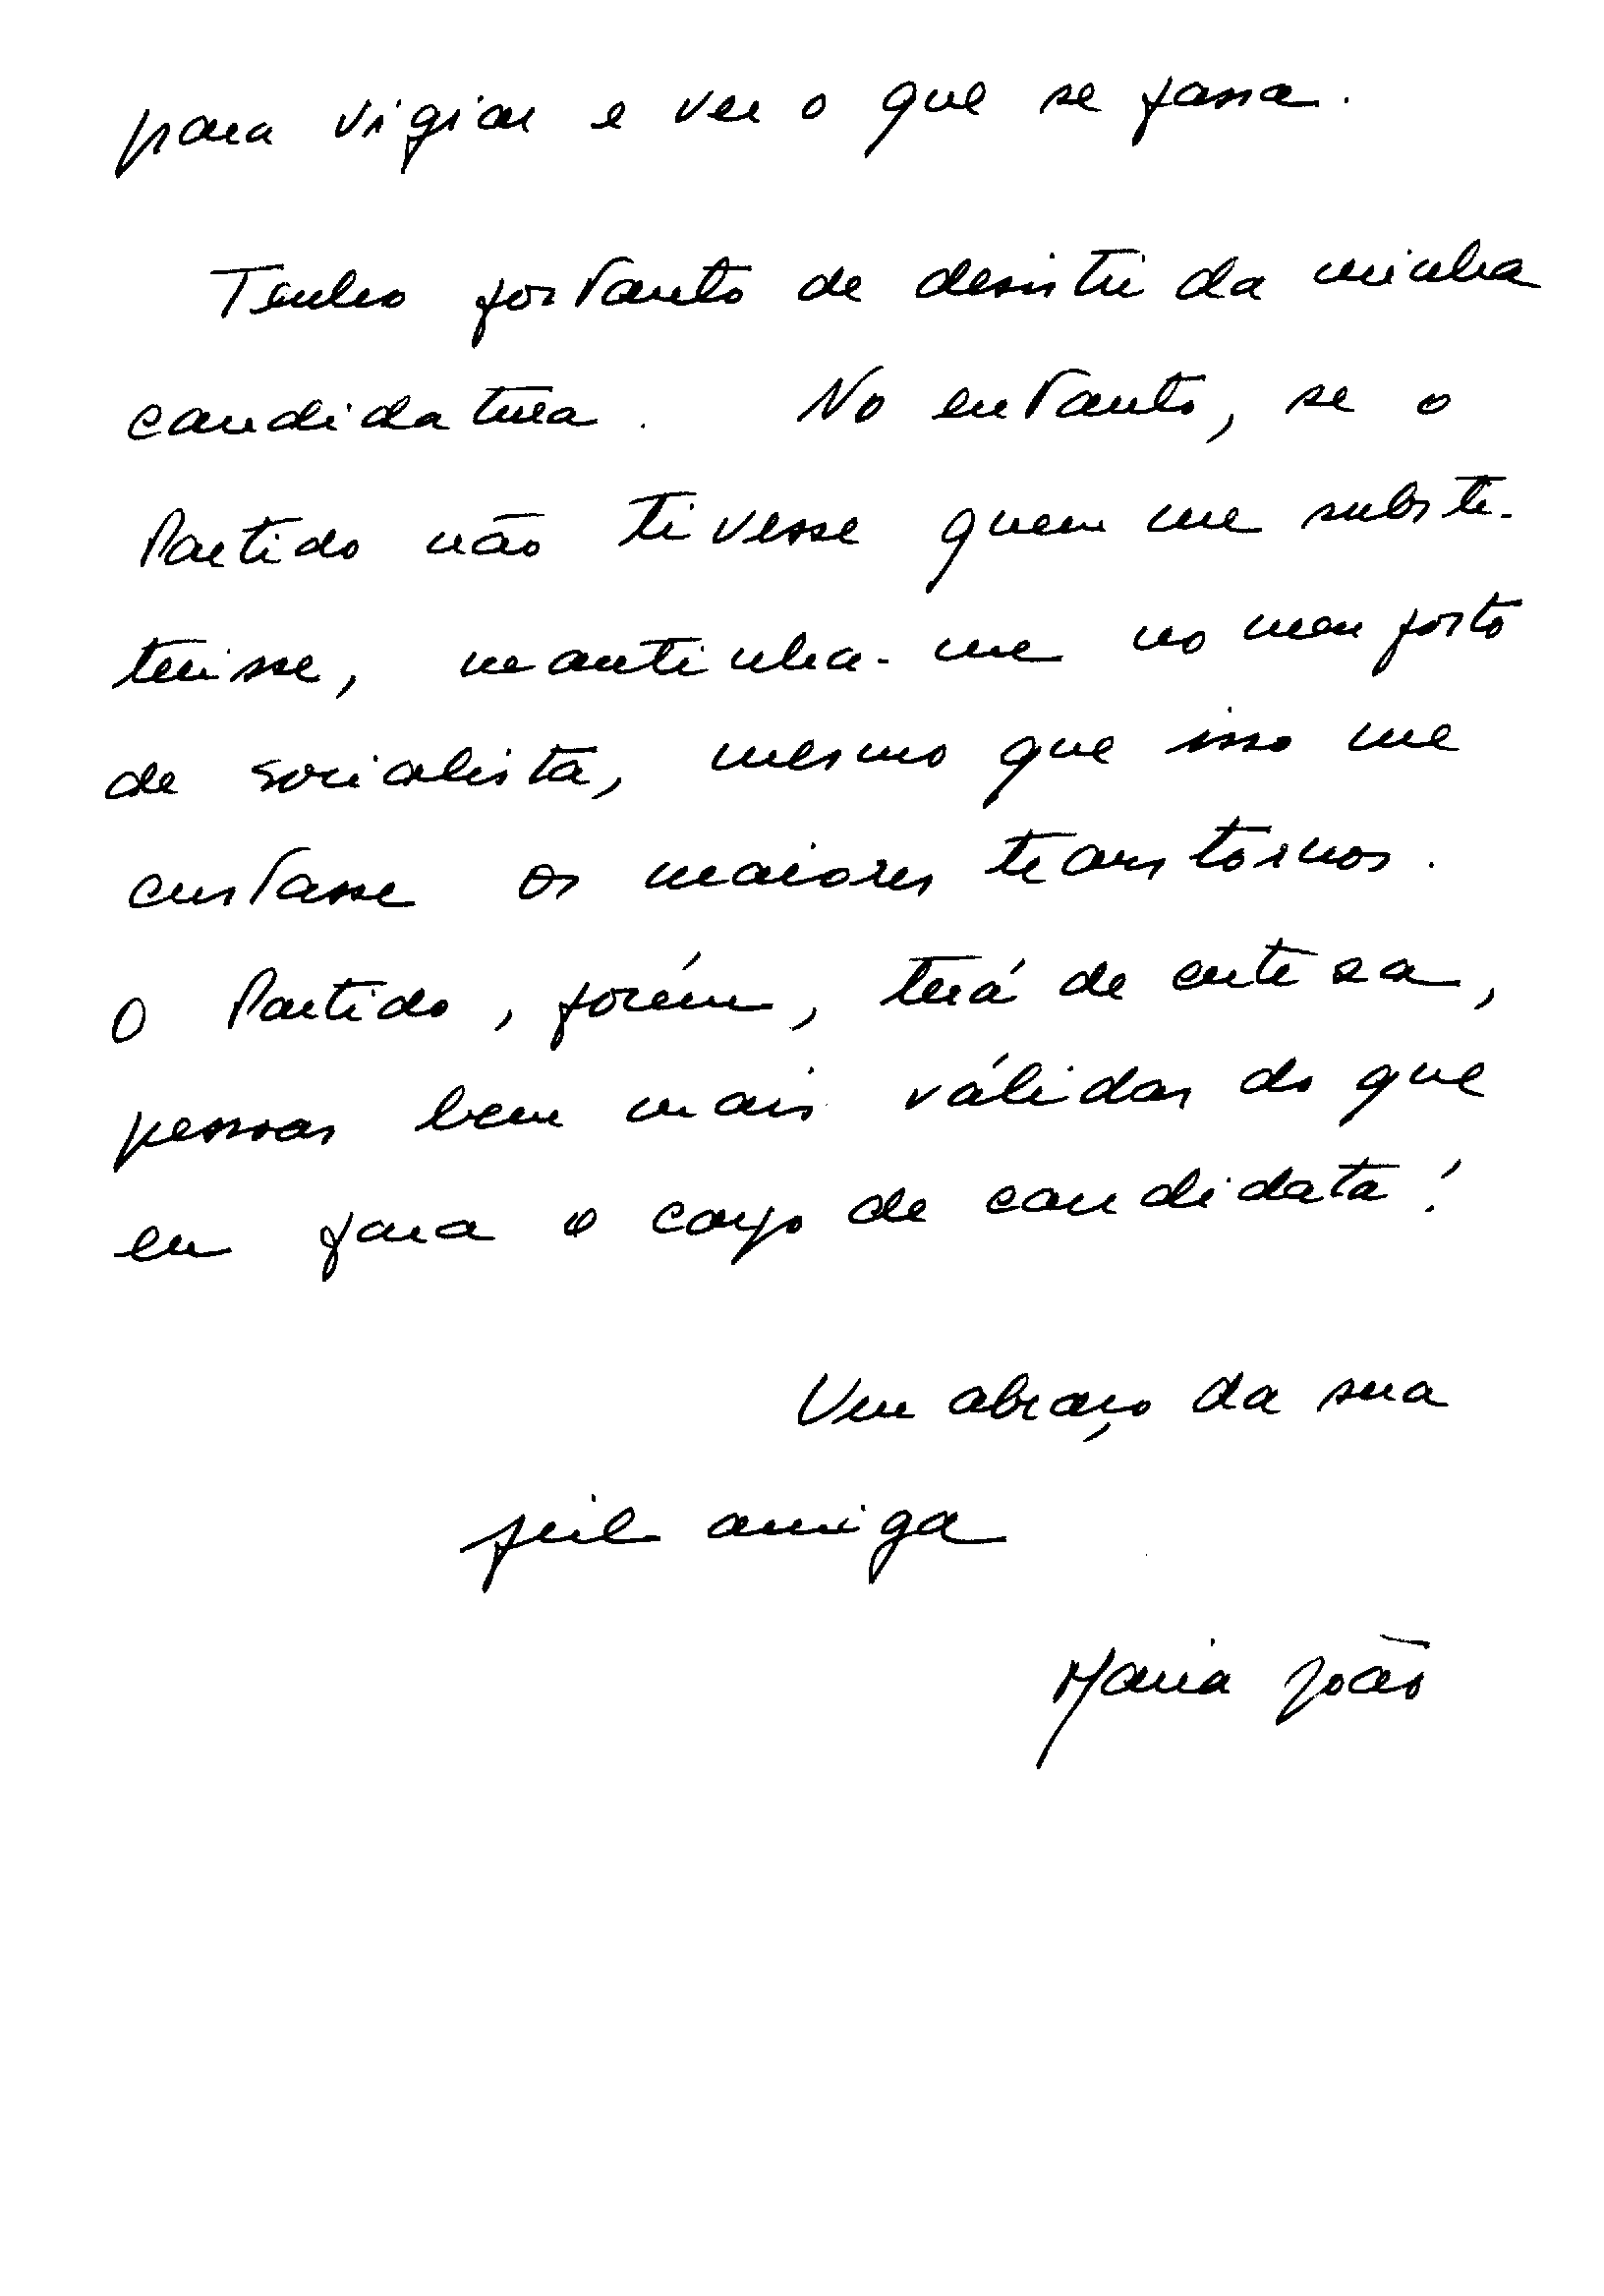 para vigiar e ver o que se passa.
Tenho portanto de desistir da minha
candidatura. No entanto, se o
Partido não tivesse quem me substi-
tuisse, mantinha-me no meu posto
de socialista, mesmo que isso me
custasse os maiores transtornos.
O Partido, porém, terá de certeza,
pessoas bem mais válidas do que
eu para o cargo de candidata!
Um abraço da sua
fiel amiga
Maria João